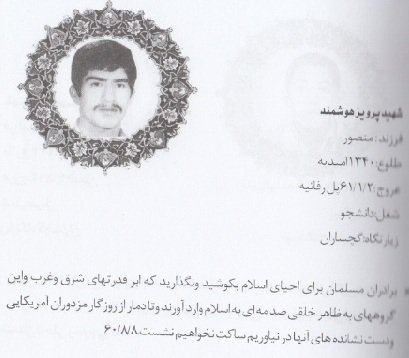 شهید پرویز هوشمند
فرزند: منصور
طلوع: ۱۳۴۰ امیدیه
عروج: ۶۱/۱/۲ پل رفائیه
شغل: دانشجو
زیارتگاه: گچساران
• برادران مسلمان برای احیای اسلام بکوشید ونگذارید که ابر قدرتهای شرق وغرب واین
گروههای به ظاهر خلقی صدمه ای به اسلام وارد آورند وتادمار از روزگار مزدوران آمریکایی
ودست نشانده های آنها در نیاوریم ساکت نخواهیم نشست. ۶۰/۸/۸